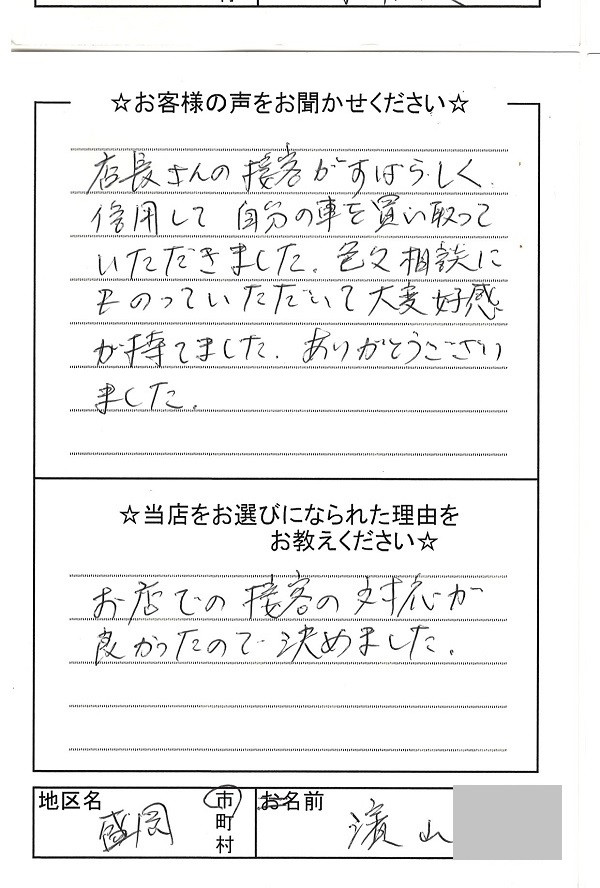 ☆お客様の声をお聞かせください☆
店長さんの接客がすばらしく
信用して 自分の車を買い取って
いただきました。色々相談に
ものっていただいて大変好感
が持てました。ありがとうござい
ました。
☆当店をお選びになられた理由を
お教えください☆
お店での接客の対応が
良かったので決めました。
地区名 盛岡 市町村 お名前 濱山